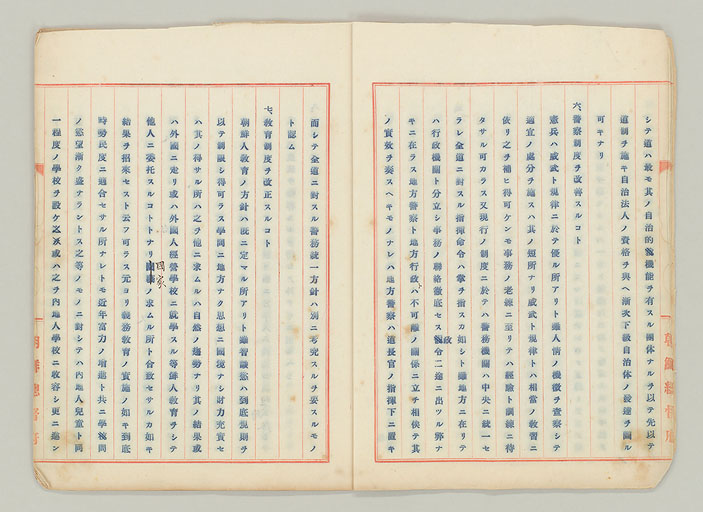 シテ道ハ最モ其ノ自治的機能ヲ有スル團体ナルヲ以テ先以テ
道制ヲ施キ自治法人ノ資格ヲ與ヘ漸次下級自治体ノ發達ヲ圖ル
可キナリ
六、警察制度ヲ改善スルコト
憲兵ハ威武ト規律ニ於テ優ル所アリト雖人情ノ機微ヲ査察シテ
適宜ノ處分ヲ施スハ其ノ短所アリ威武ト規律トハ相當ノ教習ニ
依リ之ヲ補ヒ得可ケンモ事務ノ老練ニ至リテハ經驗ト訓練ニ待
タサル可カラス又現行ノ制度ニ於テハ警務機關ハ中央ニ統一セ
ラレ全道ニ對スル指揮命令ハ掌ヲ指スカ如シト雖地方ニ在リテ
ハ行政機關ト分立シ事務ノ聯絡徹底セス政令二途ニ出ツル弊ナ
キニ在ラス地方警察ト地方行政ハ不可離ノ關係ニ立チ相俟テ其
ノ實效ヲ奏スヘキモノナレハ地方警察ハ道長官ノ指揮下ニ置キ
而シテ全道ニ對スル警務統一方針ハ別ニ考究スルヲ要スルモノ
ト認ム
七、教育制度ヲ改正スルコト
朝鮮人教育ノ方針ハ既ニ定マル所アリト雖智識慾ハ到底規則ヲ
以テ制限シ得可ラス學問ニ地方ナク思想ニ國境ナシ財力充實セ
ハ其ノ得サル所ハ之ヲ他ニ求ムルハ自然ノ趨勢ナリ其ノ結果或
ハ外國ニ走リ或ハ外國人經營學校ニ就學スル等鮮人教育ヲシテ
他人ニ委托スルコトトナリ國家ノ求ムル所ト合致セサルカ如キ
結果ヲ招來セスト云フ可ラス元ヨリ義務教育ノ實施ノ如キ到底
時勢民度ニ適合セサル所ナレトモ近年富力ノ増進ト共ニ學校
ノ慾望漸ク盛ナラントス之等ノモノニ對シテハ内地人兒童ト同
一程度ノ學校ヲ設ケ又ハ或ハ之ヲ内地人學校ニ收容シ更ニ進ン
朝鮮總督府
朝鮮總督府